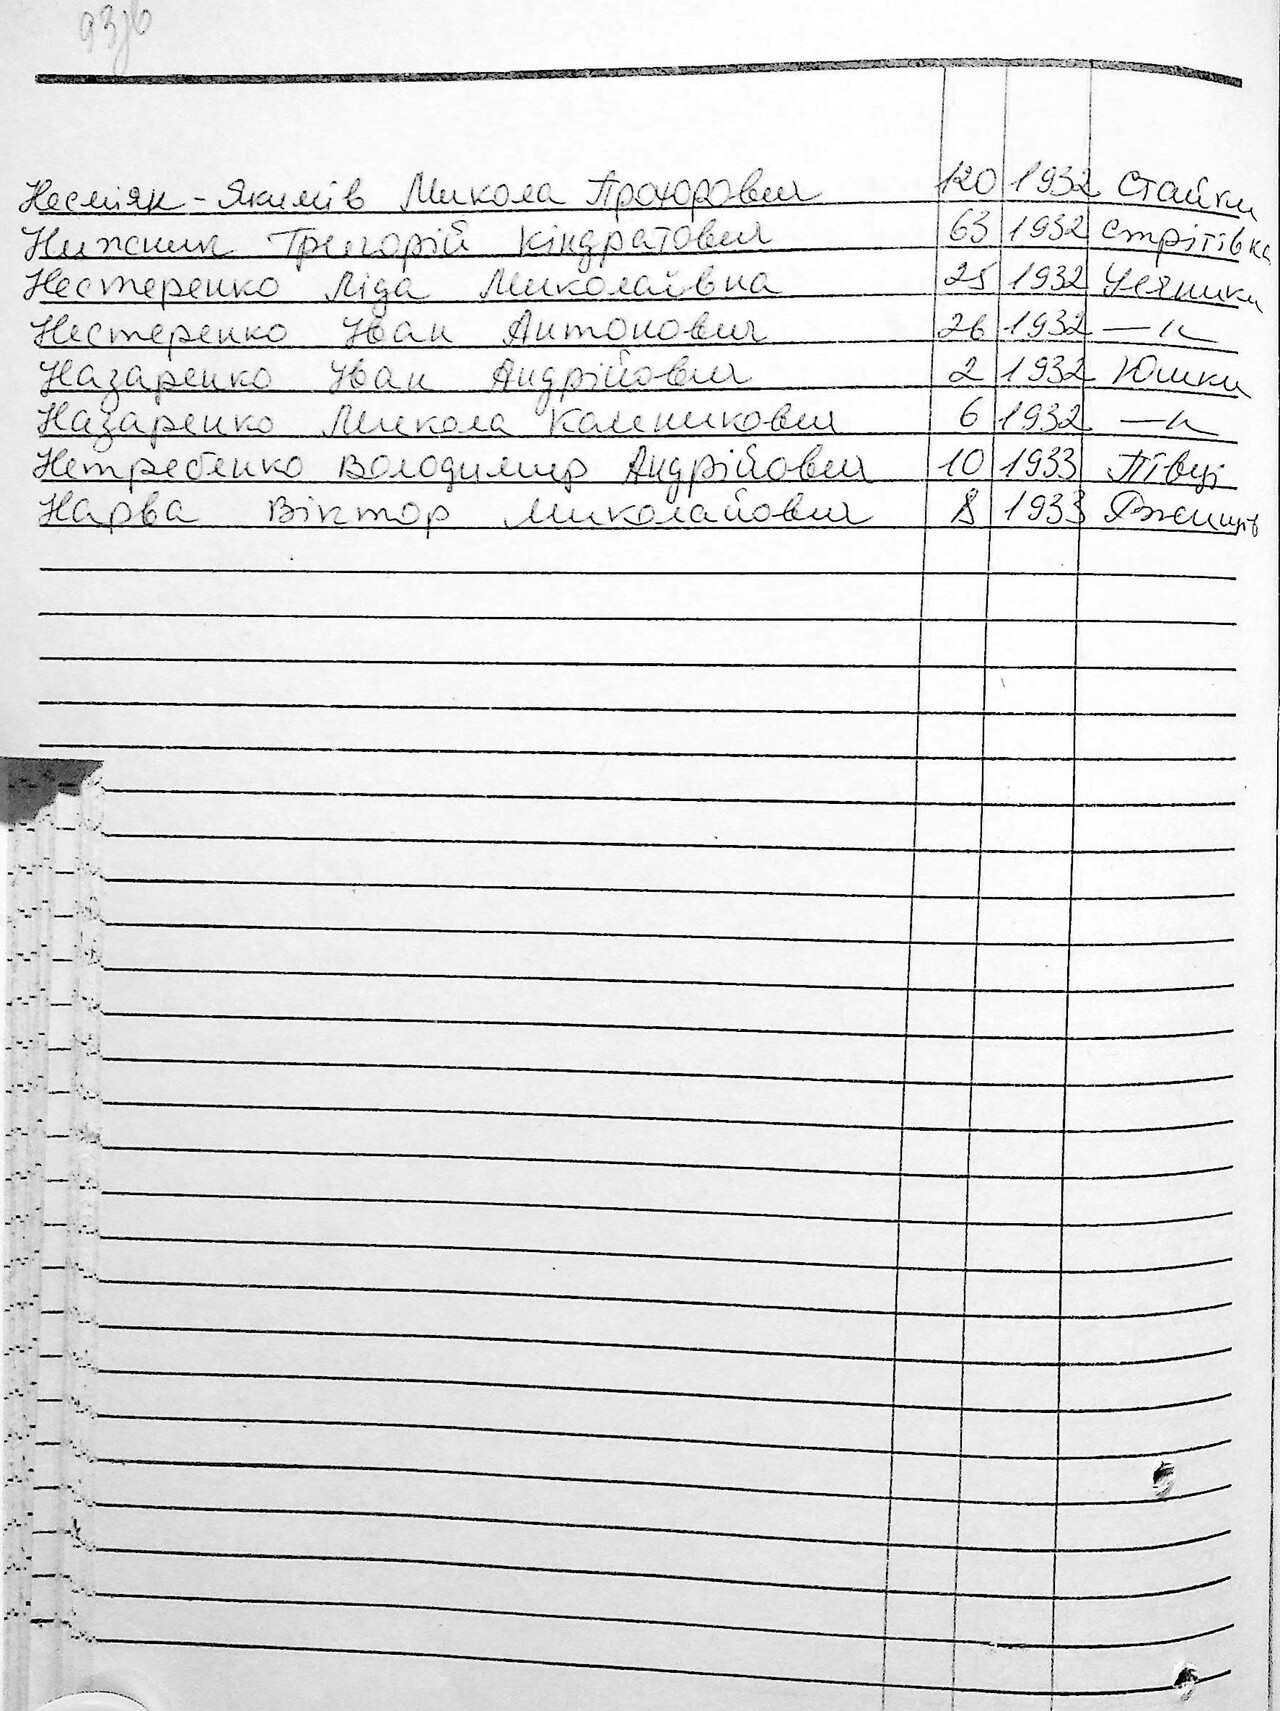 93зв
Несміян-Якимів Микола Прохорович 120 1932 Стайки
Нижник Григорій Кіндратович 63 1932 Стрітівка
Нестеренко Ліда Миколаївна 25 1932 Уляники
Нестеренко Іван Антонович 26 1932 —"—
Назаренко Іван Андрійович 2 1932 Юшки
Назаренко Микола Каленикович 6 1932 —"—
Нетребенко Володимир Андрійович 10 1933 Півці
Нарва Віктор Миколайович 8 1933 Ржищів